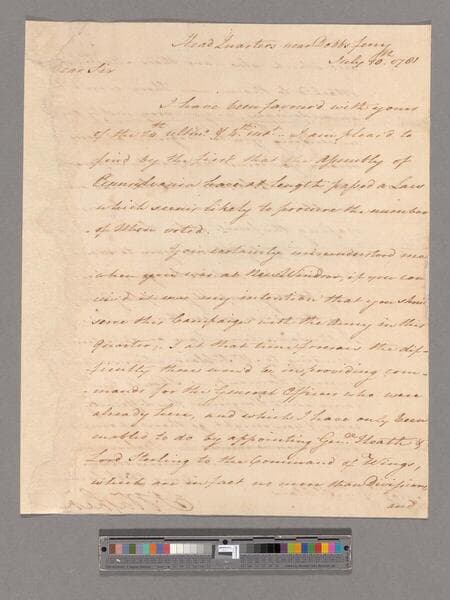 Head Quarters near Dobbs ferry
July 10th. 1781
Dear Sir
I have been favour'd with yours
of the 24th. ulto. & 5th. inst. I am pleas'd to
find by the first that the Assembly of
Pennsylvania have at length passed a Law
which seems likely to procure the number
of Men voted.
You certainly misunderstood me
when you was at New Windsor, if you con
ceiv'd it was my intention that you should
serve this Campaign with the Army in this
Quarter; I at that time foresaw the dif-
ficulty there would be in providing com-
mands for the General Officers who were
already here, and which I have only been
enabled to do by appointing Genl. Heath &
Lord Sterling to the Command of Wings,
which are in fact no more than Divisions
and